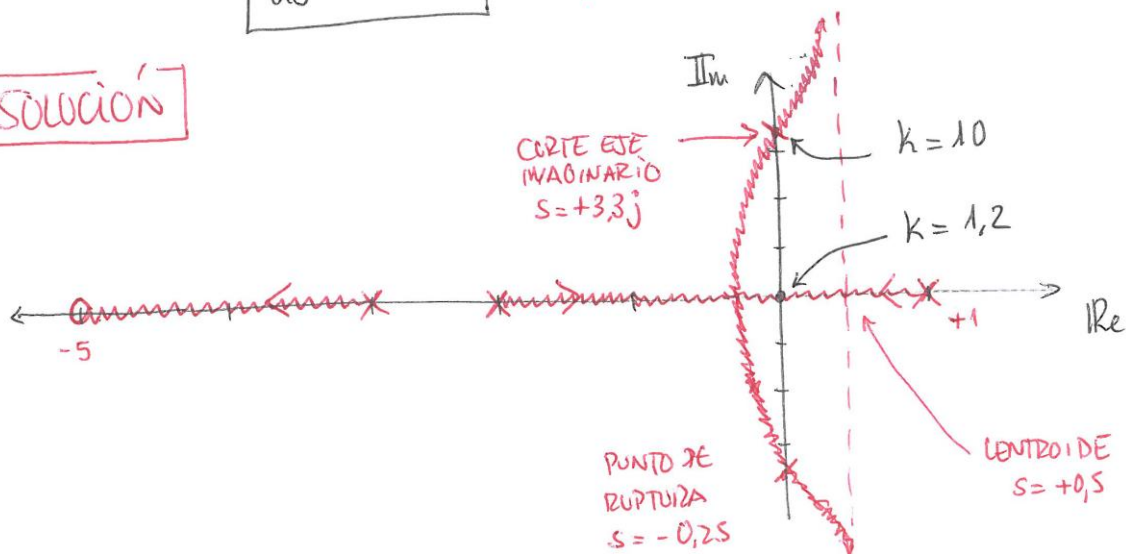 SOLUCIÓN
IIm
CORTE EJE
IMAGINARIO
S=+3,3j
k=10
k=1,2
-5
+1
IRe
PUNTO DE
RUPTURA
S=-0,25
CENTROIDE
S=+0,5